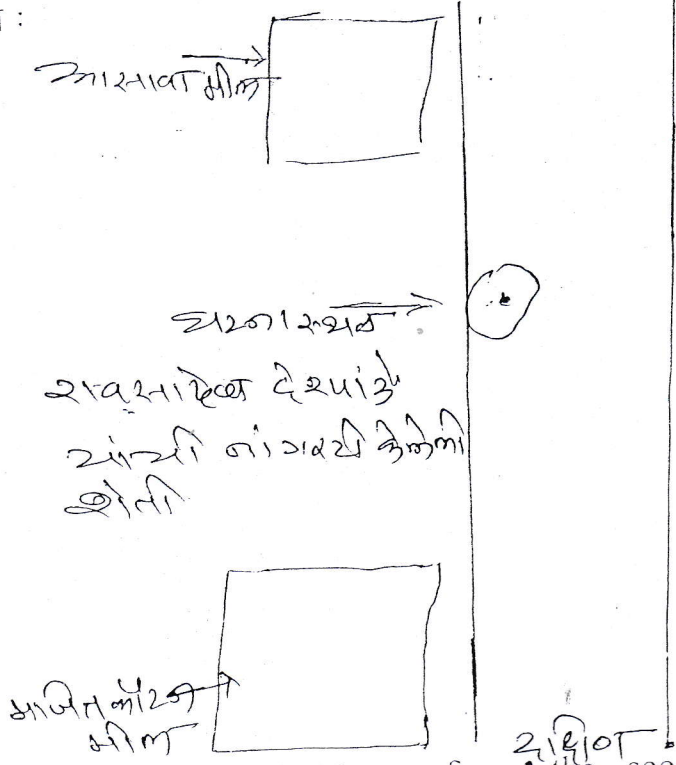 आसावा मील
घटनास्थळ
रावसाहेब देशपांडे
यांची नांगरटी केलेली
शेती
अजित कॉटन
मील
दक्षिण